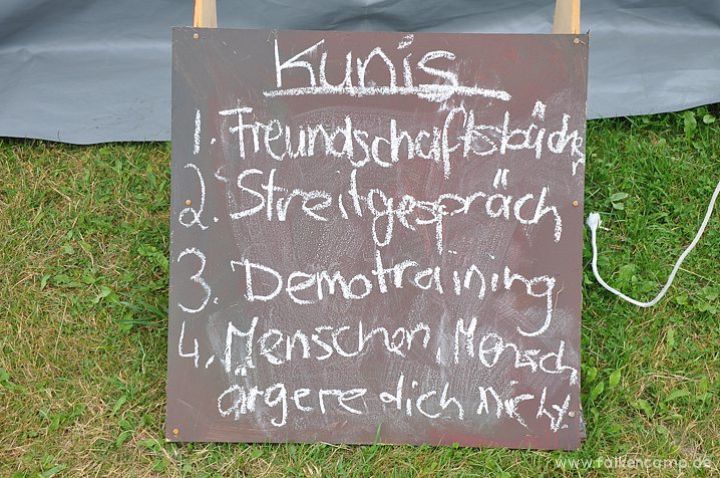 Kunis
1. Freundschaftsbäche
2. Streitgespräch
3. Demotraining
4. Menschen, Mensch
ärgere dich nicht
www.falkencamp.de